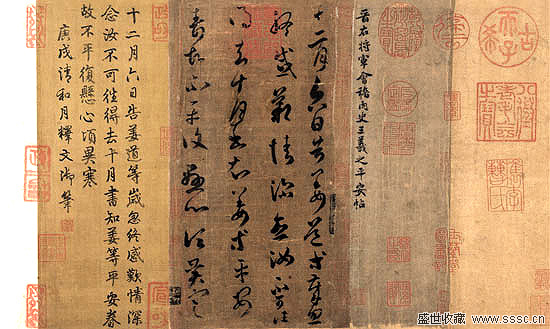 古希天子
八徵耄耋之寶
晉右將軍會稽內史王羲之平安帖
十二月六日告姜道等歲忽
終感歎情深念汝不可往
得去十月書知姜等平安
春故不平復懸心頃異寒
十二月六日告姜道等歲忽終感歎情深
念汝不可往得去十月書知姜等平安春
故不平復懸心頃異寒
庚戌清和月釋文御筆
盛世收藏 www.sssc.cn